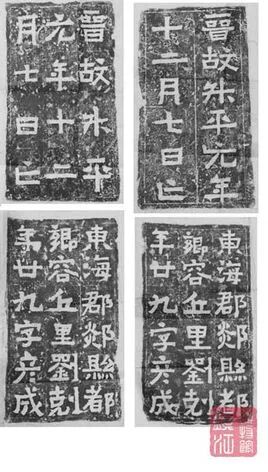 晉故升平元年
十二月七日亡
晉故升平
元年十二
月七日亡
東海郡郯縣都
鄉容丘里劉剋
年廿九字彥成
東海郡郯縣都
鄉容丘里劉剋
年廿九字彥成